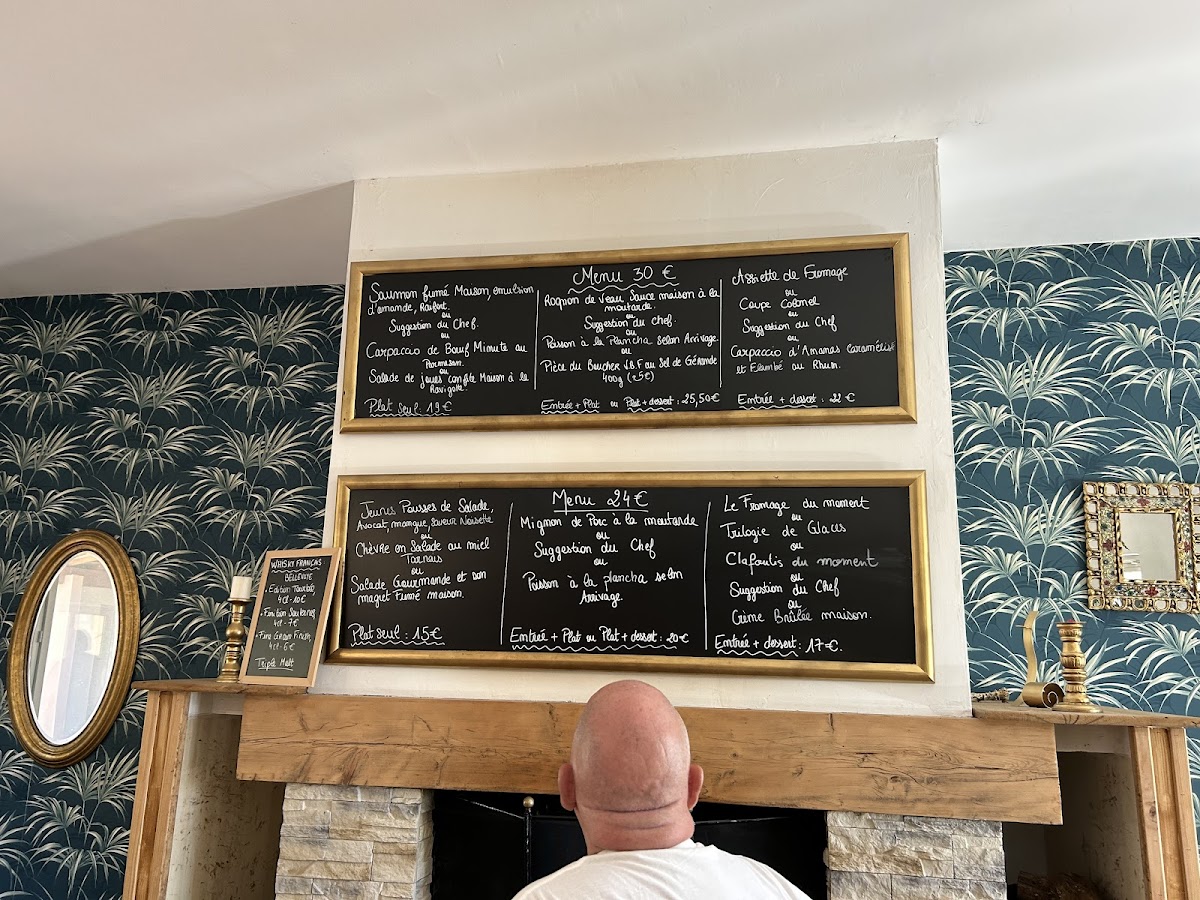 Menu 30 €
Saumon fumé Maison, emulsion
d'amande, Raifort.
ou
Suggestion du Chef.
ou
Carpaccio de Bœuf Minute au
Parmesan.
ou
Salade de joues confite Maison à la
Ravigotte.
Plat seul : 19 €
Rognon de Veau Sauce maison à la
moutarde.
ou
Suggestion du chef.
ou
Poisson à la Plancha selon Arrivage.
ou
Pièce du Boucher V.B.F au Sel de Gérande
400g (+5€)
Entrée + Plat ou Plat + dessert : 25,50€
Assiette de Fromage
ou
Coupe Colonel
ou
Suggestion du Chef
ou
Carpaccio d'Ananas caramélisé
et Flambé au Rhum.
Entrée + dessert : 22 €
Menu 24€
Jeunes Pousses de Salade,
Avocat, mangue, saveur Noisette
ou
Chèvre en Salade au miel
Tarnais
ou
Salade Gourmande et son
magret Fumé maison.
Plat seul : 15€
Mignon de Porc à la moutarde
ou
Suggestion du Chef
ou
Poisson à la plancha selon
Arrivage.
Entrée + Plat ou Plat + dessert : 20€
Le Fromage du moment
ou
Trilogie de Glaces
ou
Clafoutis du moment
ou
Suggestion du Chef
ou
Crème Brûlée maison.
Entrée + dessert : 17€.
WHISKY FRANÇAIS
BELLEVOYE
Edition Tourbée
4cl - 10€
Finition Sauternes
4cl - 7€
Fine Grain Finish
4cl - 6€
Triple Malt